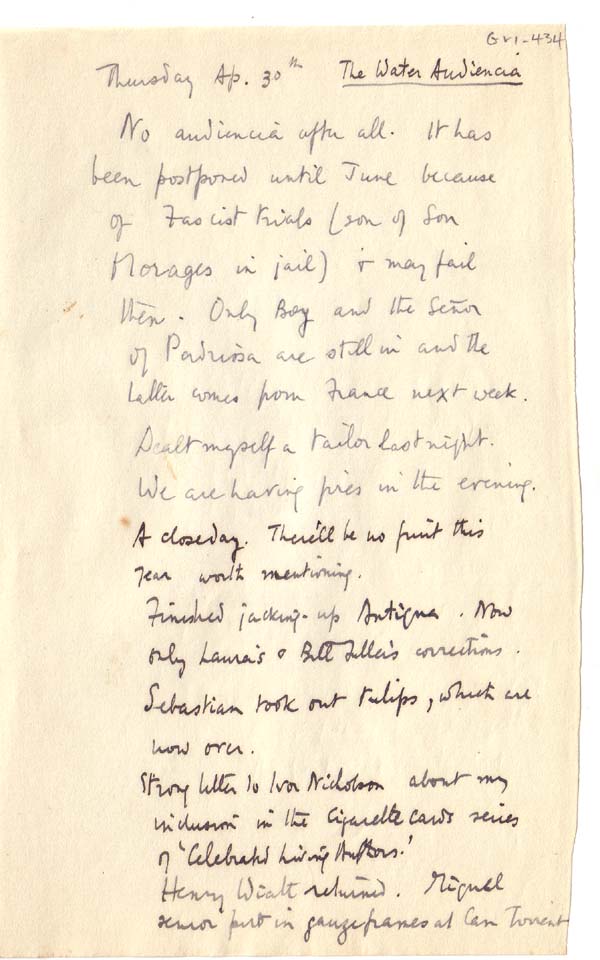 GVI-434
Thursday Ap. 30th The Water Audiencia
No audiencia after all. It has
been postponed until June because
of Fascist trials (son of Son
Morages in jail) & may fail
then. Only Boy and the Señor
of Pedriosa are still in and the
latter comes from France next week.
Dealt myself a tailor last night.
We are having fires in the evening.
A close day. There'll be no fruit this
year worth mentioning.
Finished jacking-up Antigua. Now
only Laura's & Bill Fuller's corrections.
Sebastian took out tulips, which are
now over.
Strong letter to Ivor Nicholson about my
inclusion in the Cigarette Cards series
of 'Celebrated Living Authors.'
Henry Wialt returned. Miguel
senior put in gauze frames at Can Torrent